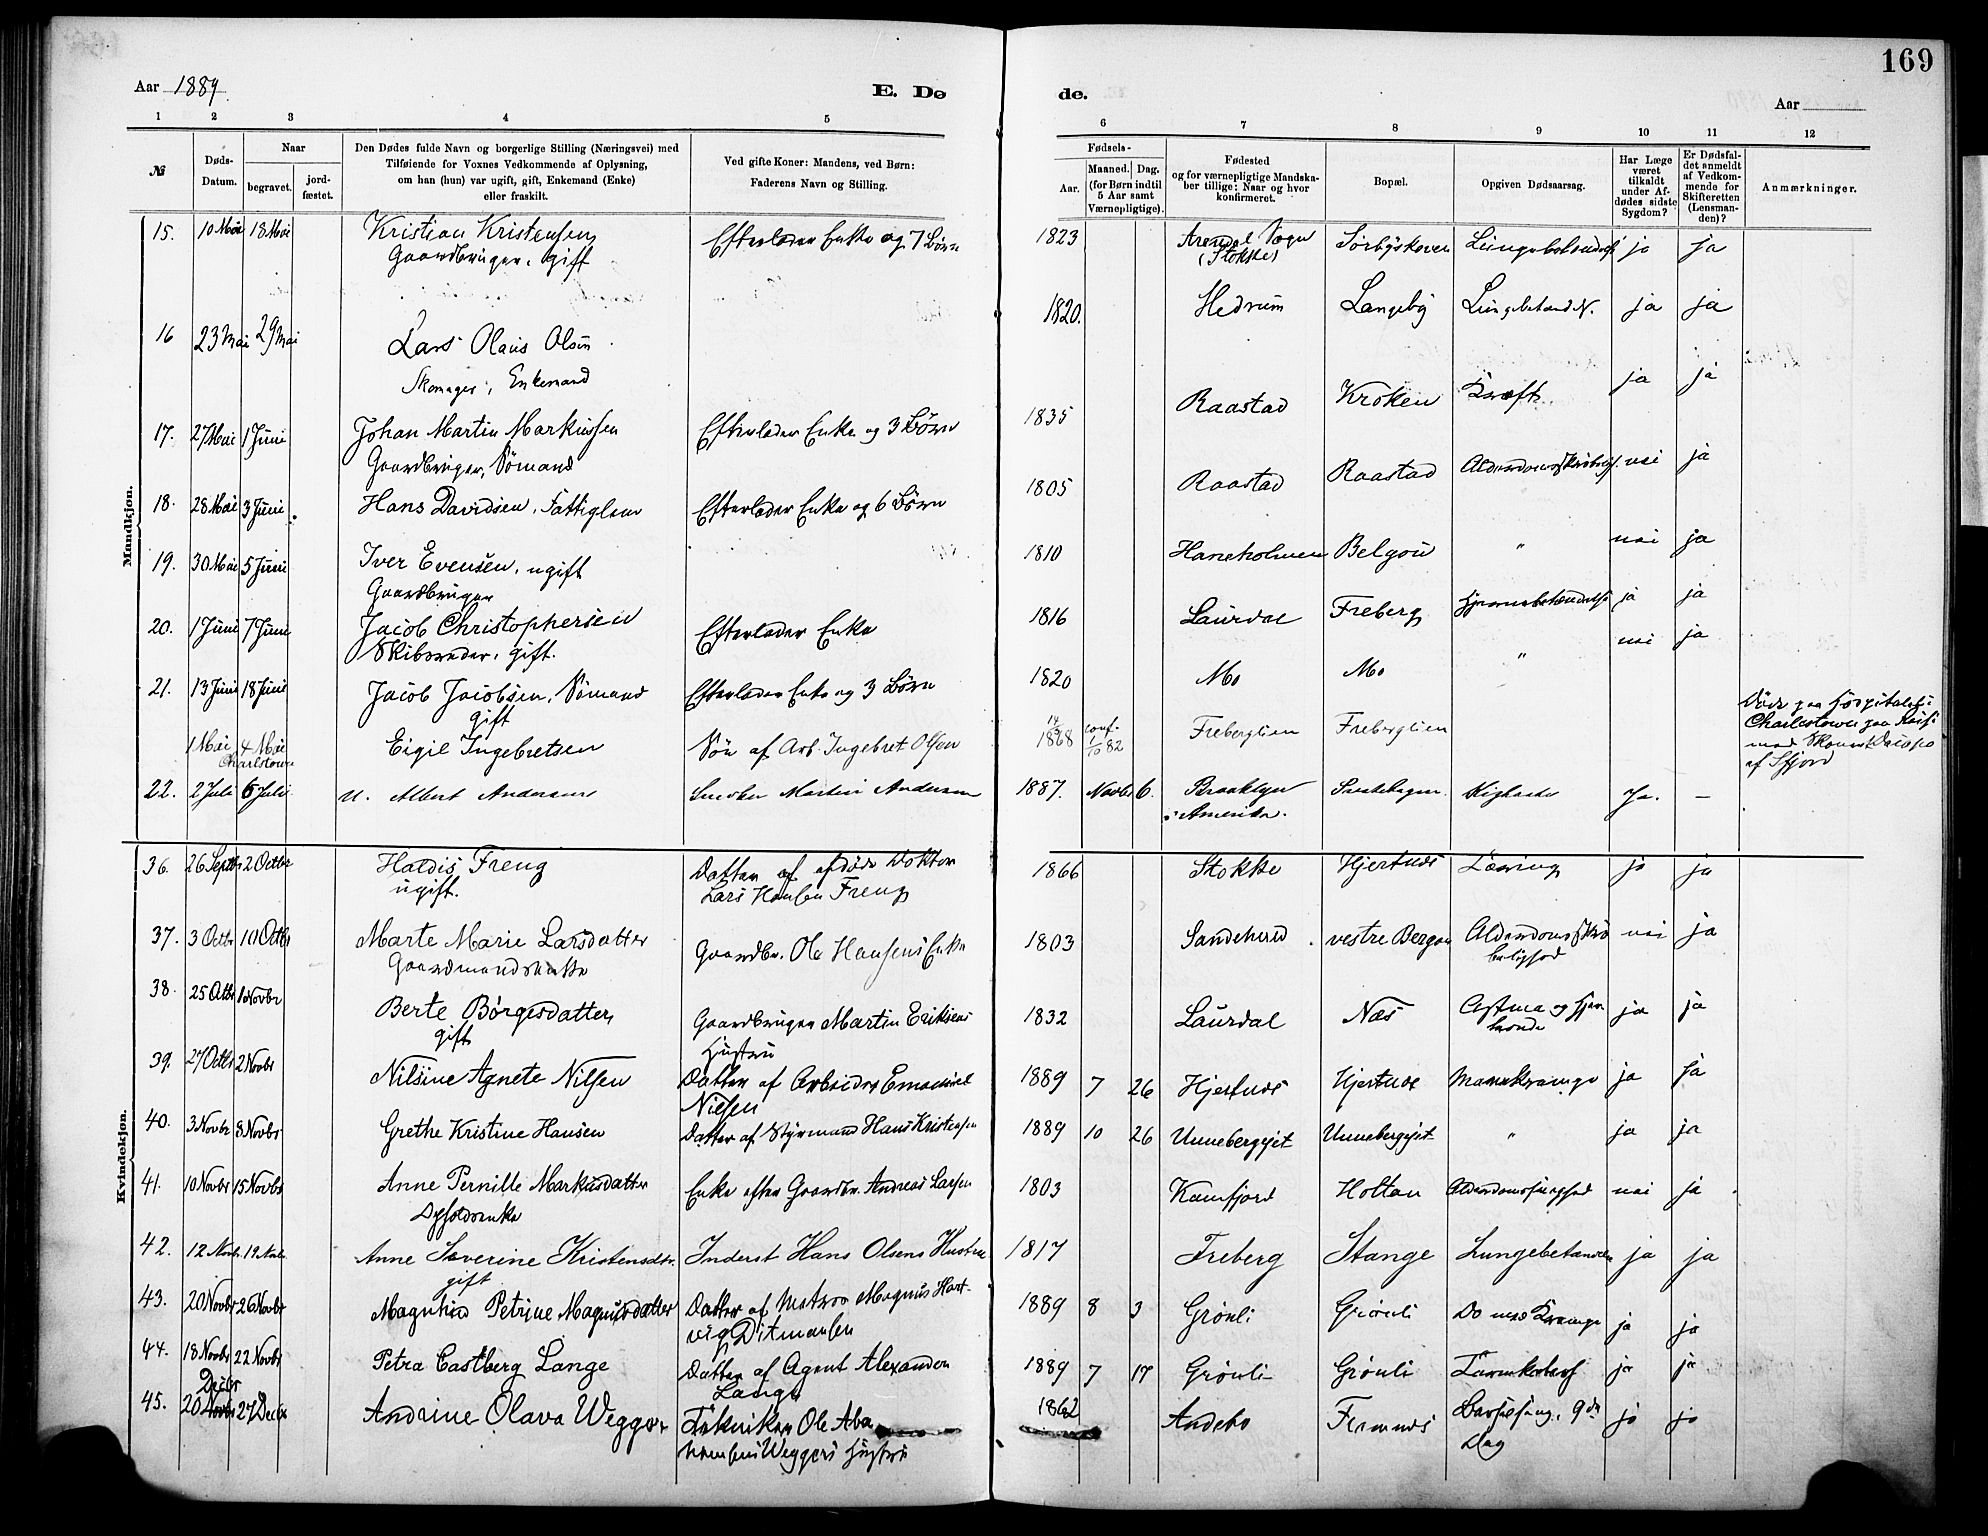 169
Aar 1889.
E. Dø
de.
Aar
1 2 3 4 5 6 7 8 9 10 11 12
№
Døds-
Datum.
Naar
begravet.
jord-
fæstet.
Den Dødes fulde Navn og borgerlige Stilling (Næringsvei) med
Tilføiende for Voxnes Vedkommende af Oplysning,
om han (hun) var ugift, gift, Enkemand (Enke)
eller fraskilt.
Ved gifte Koner: Mandens, ved Børn:
Faderens Navn og Stilling.
Fødsels-
Aar.
Maaned. Dag.
(for Børn indtil
5 Aar samt
Værnepligtige).
Fødested
og for værnepligtige Mandska-
ber tillige: Naar og hvor
konfirmeret.
Bopæl.
Opgiven Dødsaarsag.
Har Læge
været
tilkaldt
under Af-
dødes sidste
Sygdom?
Er Dødsfal-
det anmeldt
af Vedkom-
mende for
Skifteretten
(Lensman-
den)?
Anmærkninger.
Mandkjøn.
15. 10 Mai 18 Mai Kristian Kristensen Efterlader Enke og 7 Børn 1823 Sørbyskoven ja ja
Gaardbruger, gift (Stokke)
16 23 Mai 29 Mai Lars Olaus Olsen 1820. Hedrum Langeby Lungebetænd. ja ja
Skomager, Enkemand
17. 27 Mai 1 Juni Johan Martin Markussen Efterlader Enke og 3 Børn 1835 Raastad Kroken Kræft. ja ja
Gaardbruger, Sømand
18. 28 Mai 3 Juni Hans Davidsen, Fattiglem Efterlader Enke og 6 Børn 1805 Raastad Raastad nei ja
19. 30 Mai 5 Juni Iver Evensen, ugift 1810 Haneholmen Belgau " nei ja
Gaardbruger
20. 1 Juni 7 Juni Jacob Christophersen Efterlader Enke 1816 Laurdal Freberg Hjernebetændelse ja ja
Skibsreder, gift.
21. 13 Juni 18 Juni Jacob Jacobsen, Sømand Efterlader Enke og 3 Børn 1820 Mo Mo " nei ja
gift
1 Mai 4 Mai Eigil Ingebretsen Søn af Arb. Ingebret Olsen 1868 conf. 1/10 82 Freberglien Freberglien
Charlstown
Døde paa Hospitalet i
Charlestown paa Reise
med
af Sfjord
22. 2 Juli 6 Juli Albert Andersen Snedker Martin Andersen 1887. Novbr 6. Brooklyn Kighoste Ja. —
i Amerika.
Kvindekjøn.
36. 26 Septbr 2 Octbr Haldis Freng Datter af afdøde Doktor 1866 Stokke Hjertnes Tæring ja ja
ugift. Lars Hansen Freng
37. 3 Octbr 10 Octbr Marte Marie Larsdatter Gaardbr. Ole Hansens Enke 1803 Sandeherred vestre Bergan Alderdomsskrø nei ja
Gaardmandsenke belighed
38. 25 Octbr 1 Novbr Berte Børgesdatter, Gaardbruger Martin Eriksens 1832 Laurdal Næs Astma og Hjer ja ja
gift Hustru
39. 27 Octbr 2 Novbr Nilsine Agnete Nilsen Datter af Arbeider Emanuel 1889 7 26 Hjertnes Hjertnes Mavekrampe ja ja
Nielsen
40. 3 Novbr 8 Novbr Grethe Kristine Hansen Datter af Styrmand Hans Kristensen 1889 10 26 Unnebergejet Unnebergejet " ja ja
41. 10 Novbr 15 Novbr Anne Pernille Markusdatter Enke efter Gaardbr. Andreas Larsen 1803 Kamfjord Holtan nei ja
42. 12 Novbr. 19 Novbr. Anne Severine Kristensdtr. Inderst Hans Olsens Hustru 1817 Freberg Stange Lungebetændelse ja ja
gift
43. 20 Novbr 26 Novbr Magnhia Petrine Magnusdatter Datter af Matros Magnus Hart- 1889 8 3 Grønli Grønli Do med Krampe ja ja
vig Ditmansen
44. 18 Novbr 22 Novbr Petra Castberg Lange Datter af Agent Alexander 1889 7 17 Grønli Grønli ja ja
Lange
45. 20 Decbr 27 Decbr Andrine Olava Wegger Ole Abra 1862 Andebo Fevang Barselseng, 9de ja ja
hamsens Weggers Hustru Dag